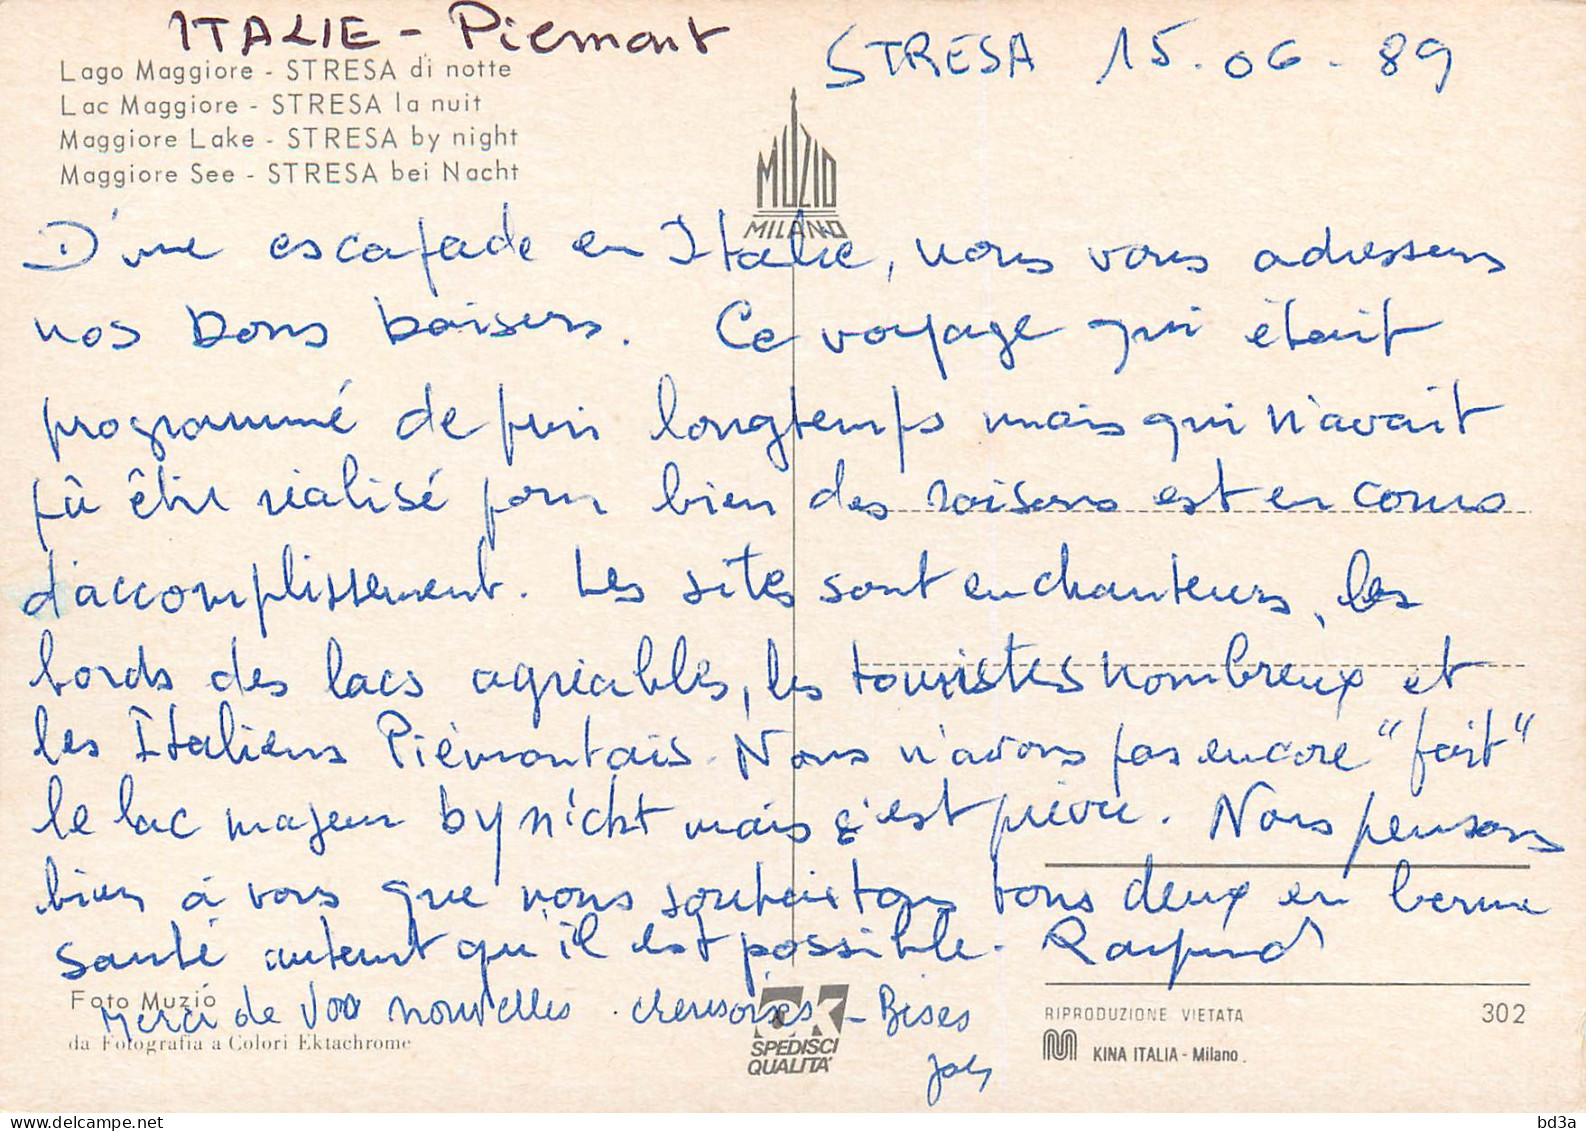 ITALIE - Piemont
STRESA 15.06.89
Lago Maggiore - STRESA di notte
Lac Maggiore - STRESA la nuit
Maggiore Lake - STRESA by night
Maggiore See - STRESA bei Nacht
MUZIO
MILANO
D'une escapade en Italie, nous vous adressons
nos bons baisers. Ce voyage qui était
programmé depuis longtemps mais qui n'avait
pû être réalisé pour bien des raisons est en cours
d'accomplissement. Les sites sont enchanteurs, les
bords des lacs agréables, les touristes nombreux et
les Italiens Piémontais. Nous n'avons pas encore "fait"
le lac majeur by nicht mais c'est prévu. Nous pensons
bien à vous que nous souhaitons tous deux en bonne
santé autant qu'il est possible. Raymond
Merci de vos nouvelles creusoises - Bises
Foto Muzio
da Fotografia a Colori Ektachrome
SPEDISCI
QUALITA'
RIPRODUZIONE VIETATA 302
KINA ITALIA - Milano
bd3a
www.delcampe.net